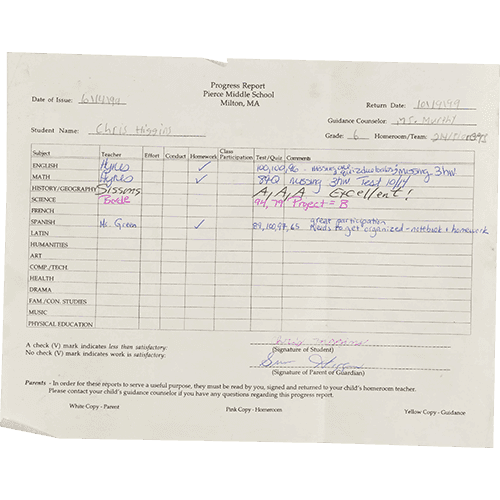 Progress Report
Pierce Middle School
Milton, MA
Date of Issue: Return Date: 10/9/99
Guidance Counselor: Ms. Murthy
Student Name: Chris Higgins Grade: 6 Homeroom/Team:
Subject Teacher Effort Conduct Homework Class Participation Test/Quiz Comments
ENGLISH Hynes ✓ 100, 100, 96 - missing missing 3 hw
MATH Hynes ✓ 84Q missing 3 hw Test 10/7
HISTORY/GEOGRAPHY Sissons A, A, A Excellent!
SCIENCE 94, 79 Project = B
FRENCH
SPANISH Ms. Green ✓ 89, 100, 97, 65 great participation
Needs to get organized - notebook + homework
LATIN
HUMANITIES
ART
COMP./TECH.
HEALTH
DRAMA
FAM./CON. STUDIES
MUSIC
PHYSICAL EDUCATION
A check (V) mark indicates less than satisfactory:
No check (V) mark indicates work is satisfactory.
Chris Higgins
(Signature of Student)
(Signature of Parent of Guardian)
Parents - In order for these reports to serve a useful purpose, they must be read by you, signed and returned to your child's homeroom teacher.
Please contact your child's guidance counselor if you have any questions regarding this progress report.
White Copy - Parent Pink Copy - Homeroom Yellow Copy - Guidance